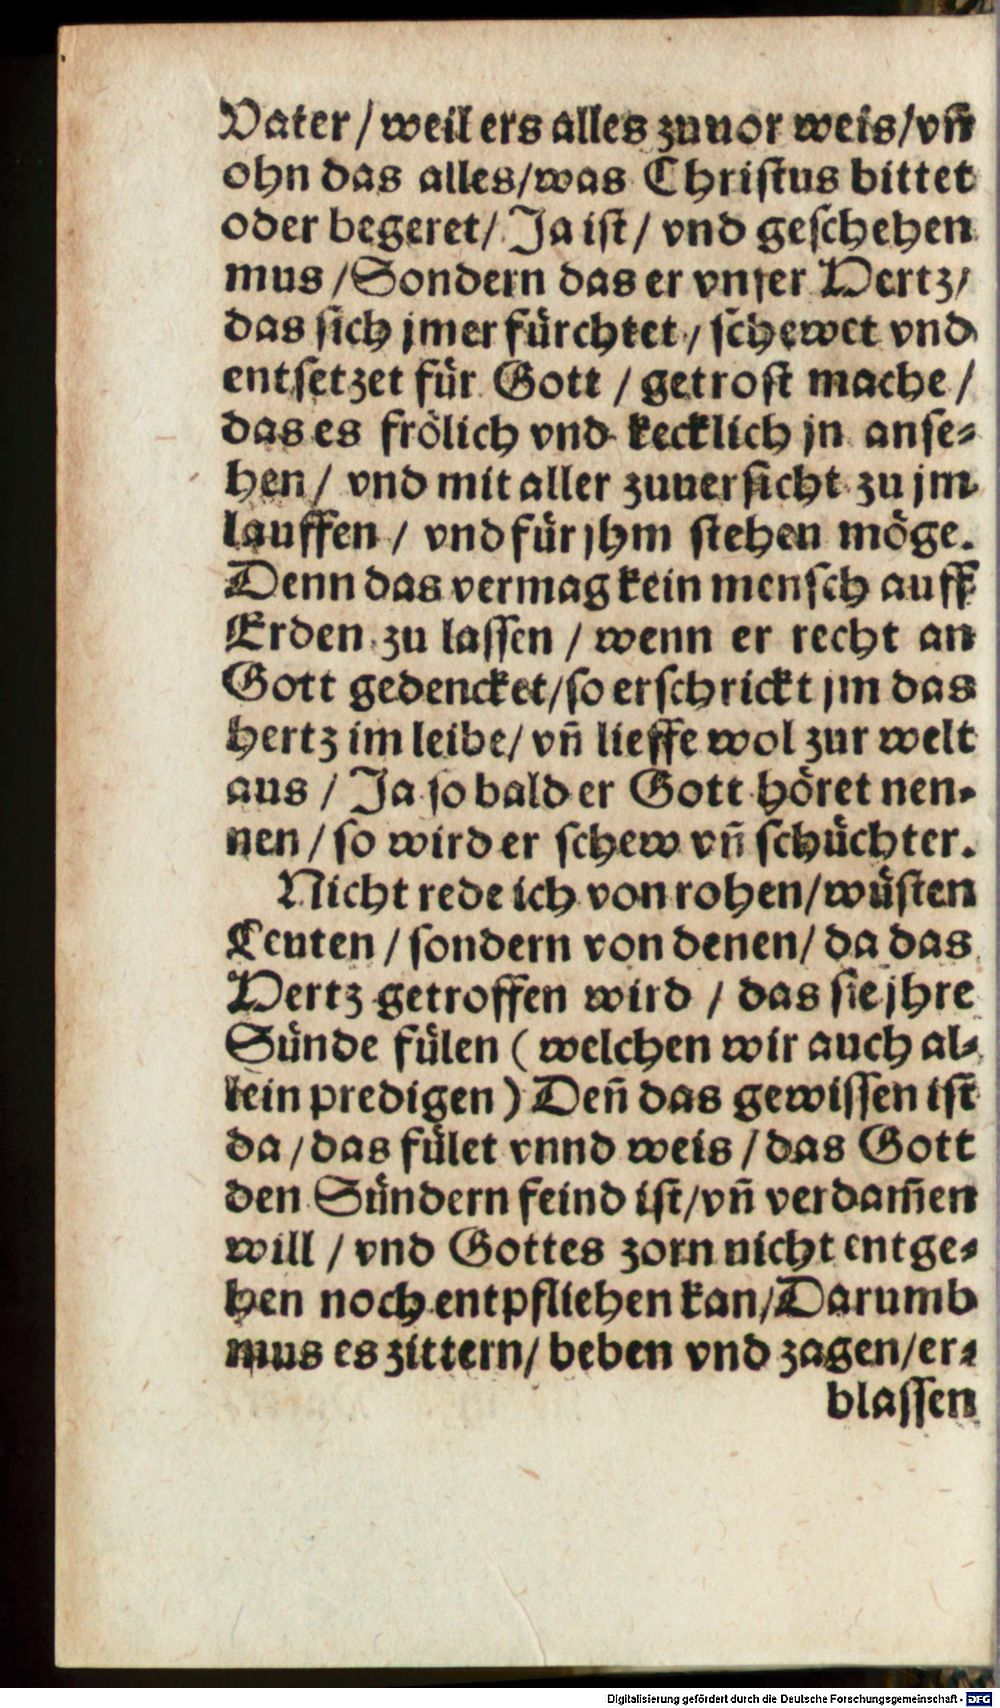 Vater / weil ers alles zuuor weis / vñ
ohn das alles / was Christus bittet
oder begeret / Ja ist / vnd geschehen
mus / Sondern das er vnser Hertz /
das sich jmer fürchtet / schewet vnd
entsetzet für Gott / getrost mache /
das es frölich vnd kecklich jn anse-
hen / vnd mit aller zuuersicht zu jm
lauffen / vnd für jhm stehen möge.
Denn das vermag kein mensch auff
Erden zu lassen / wenn er recht an
Gott gedencket / so erschrickt jm das
hertz im leibe / vñ lieffe wol zur welt
aus / Ja so bald er Gott höret nen-
nen / so wird er schew vñ schüchter.
Nicht rede ich von rohen / wüsten
Leuten / sondern von denen / da das
Hertz getroffen wird / das sie jhre
Sünde fülen ( welchen wir auch al-
lein predigen ) Deñ das gewissen ist
da / das fület vnnd weis / das Gott
den Sündern feind ist / vñ verdam̃en
will / vnd Gottes zorn nicht entge-
hen noch entpfliehen kan / Darumb
mus es zittern / beben vnd zagen / er-
blassen
Digitalisierung gefördert durch die Deutsche Forschungsgemeinschaft - DFG